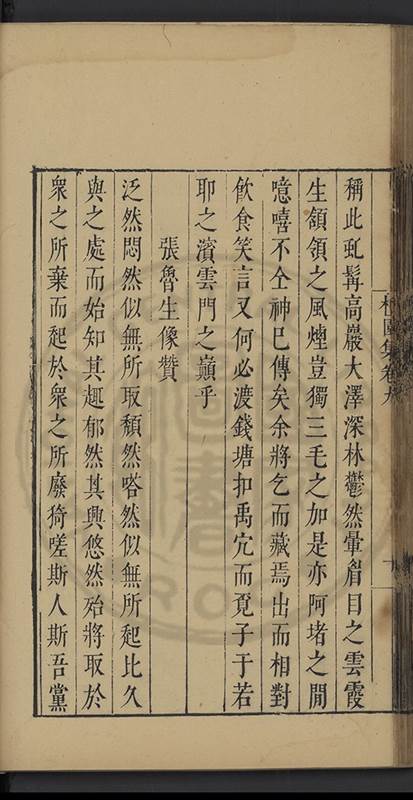 稱此虬髯高巖大澤深林鬱然暈眉目之雲霞
生頷頷之風煙豈獨三毛之加是亦阿堵之間
噫嘻不仝神巳傳矣余將乞而藏焉出而相對
飲食笑言又何必渡錢塘扣禹穴而覓子于若
耶之濱雲門之巔乎
張魯生像贊
泛然悶然似無所取頹然嗒然似無所起比久
與之處而始知其趣郁然其興悠然殆將取於
衆之所棄而起於衆之所廢猗嗟斯人斯吾黨